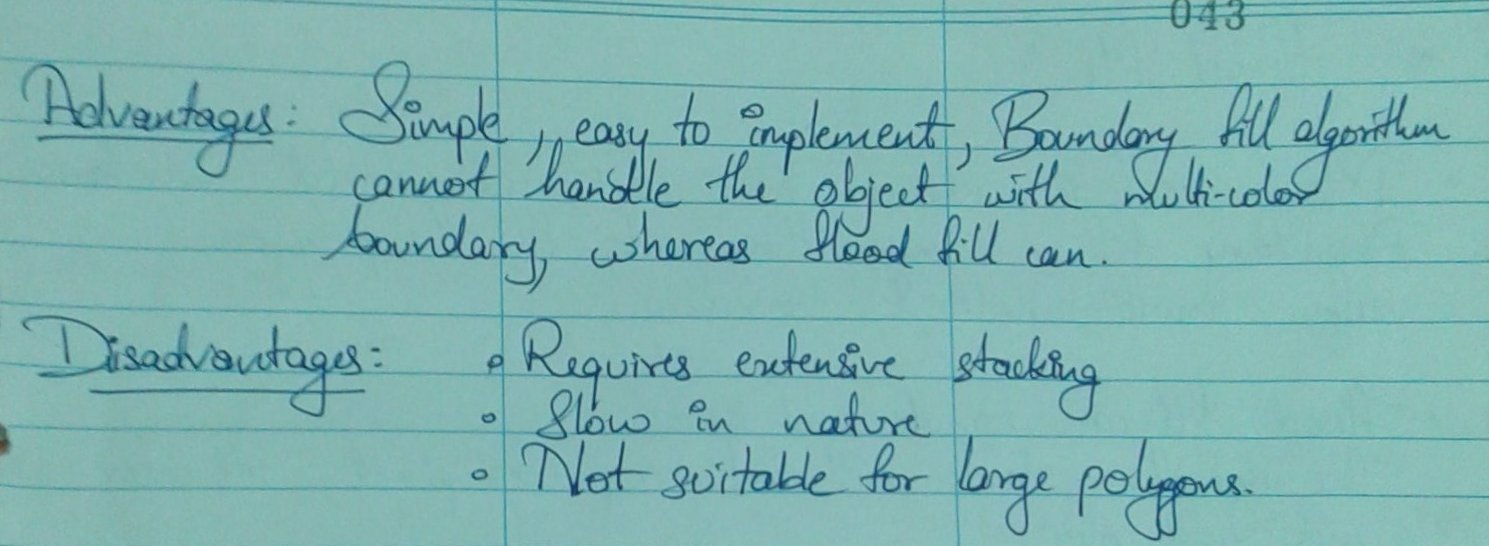 043
Advantages: Simple, easy to implement, Boundary fill algorithm
cannot handle the object with multi-color
boundary, whereas flood fill can.
Disadvantages: o Requires extensive stacking
o Slow in nature
o Not suitable for large polygons.